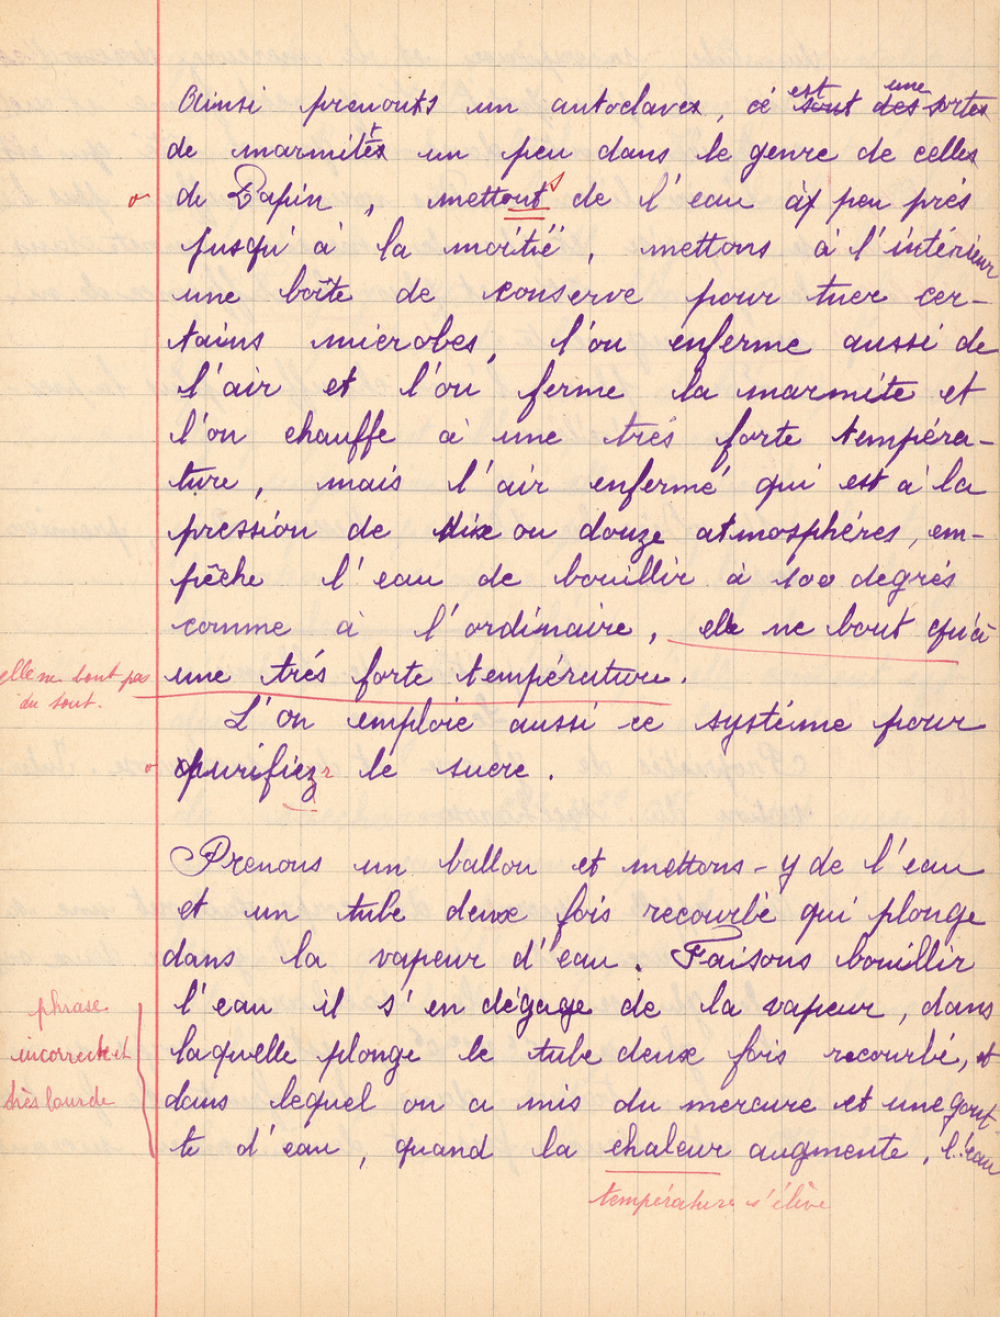 Ainsi prenons un autoclave, ce est une sorte
de marmite un peu dans le genre de celle
o de Papin, mettont s de l'eau à peu prés
jusqu'à la moitië, mettons à l'intérieur
une boîte de conserve pour tuer cer-
tains microbes, l'on enferme aussi de
l'air et l'on ferme la marmite et
l'on chauffe à une trés forte tempéra-
ture, mais l'air enfermé qui est à la
pression de dix ou douze atmosphéres, em-
pêche l'eau de bouillir à 100 degrés
comme à l'ordinaire, elle ne bout qu'à
elle ne bout pas une trés forte température.
du tout.
L'on emploie aussi ce systéme pour
o purifiez r le sucre.
Prenons un ballon et mettons-y de l'eau
et un tube deux fois recourbé qui plonge
dans la vapeur d'eau. Faisons bouillir
phrase l'eau il s'en dégage de la vapeur, dans
incorrecte et laquelle plonge le tube deux fois recourbé, et
très lourde dans lequel on a mis du mercure et une gout-
te d'eau, quand la chaleur augmente, l'eau
température s'élève